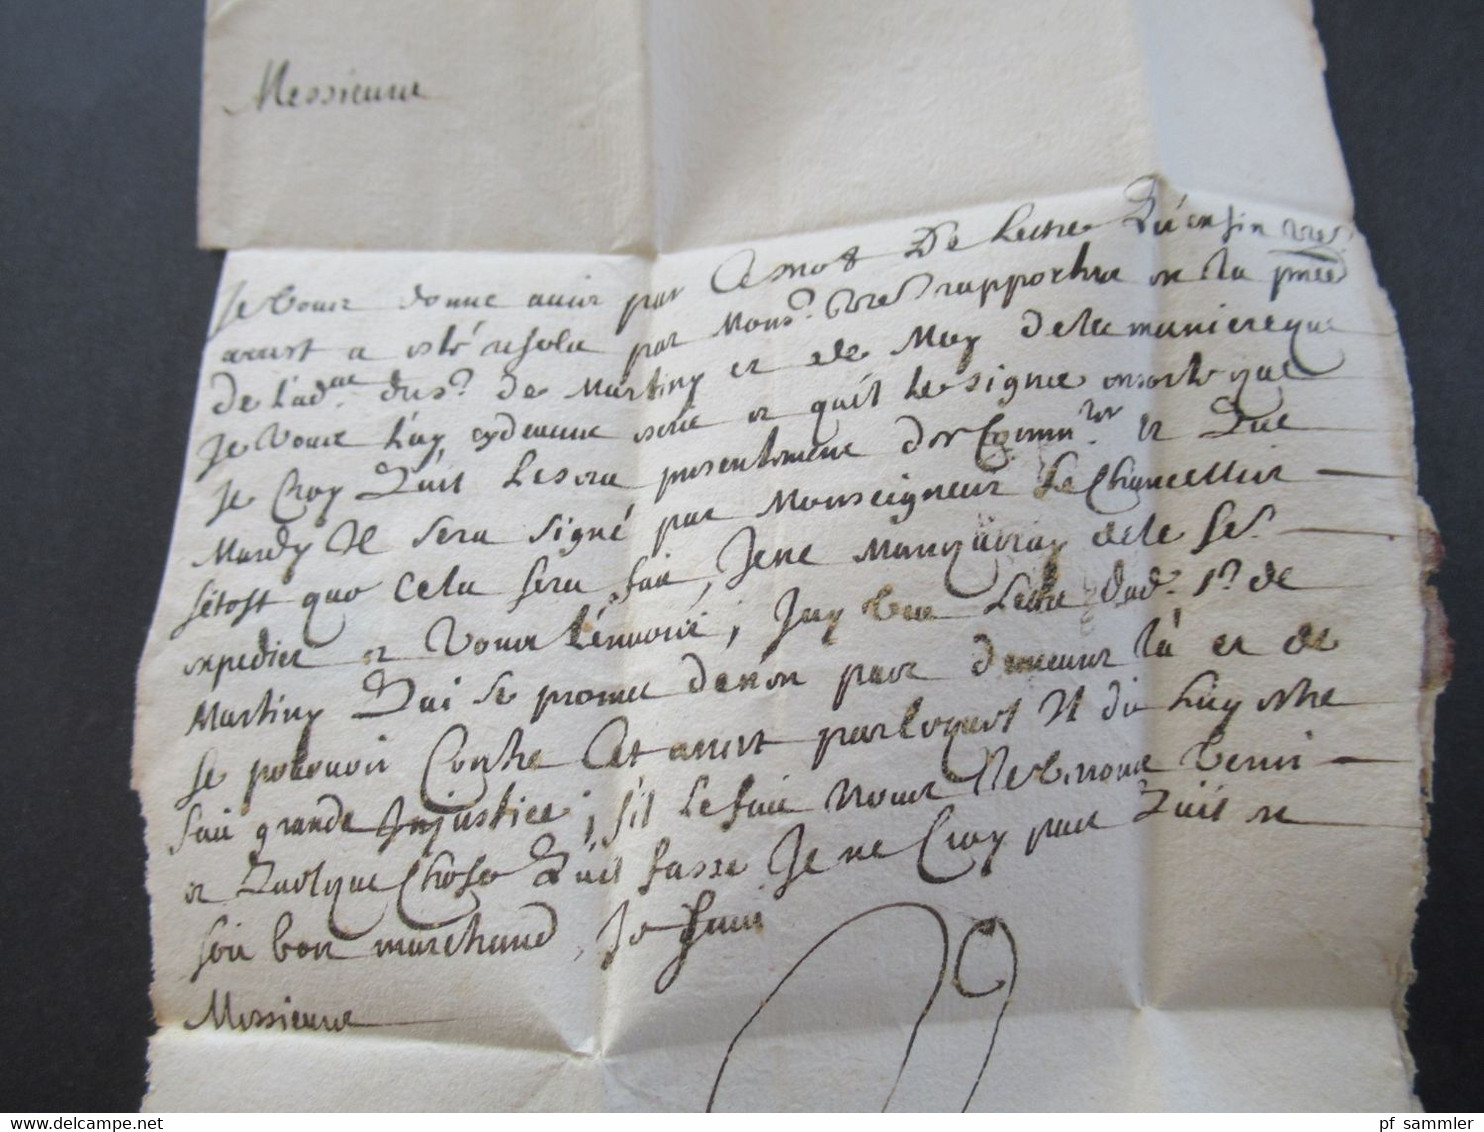 Messieurs
Je vous donne avis par ce mot de Lettre Qu'enfin vre
arrest a esté resolu par Mons.r vre rapporteur en la
de Lad. du s.r de Martiny et de May de la maniere que
Je vous l'ay cydevant escrit et qu'il le signe en sorte que
Je Croy Qu'il Le sera presentement des Comm.res et Que
Mardy Il sera signé par Monseigneur Le Chancellier
sitost que Cela sera fait, Je ne Manqueray de le fe.
expedier et vous l'envoier, J'ay veu Lettre dud. s.r de
Martiny Qui se promet d'enon pour demeurer là et de
se pourvoir Contre Cet arrest par lequel Il dit Luy estre
fait grande Injustice; s'il le fait Nous Le verrons venir
et Quelque Chose Qu'il fasse Je ne Croy pas Qu'il en
soit bon marchand, Je suis
Messieurs
pf sammler